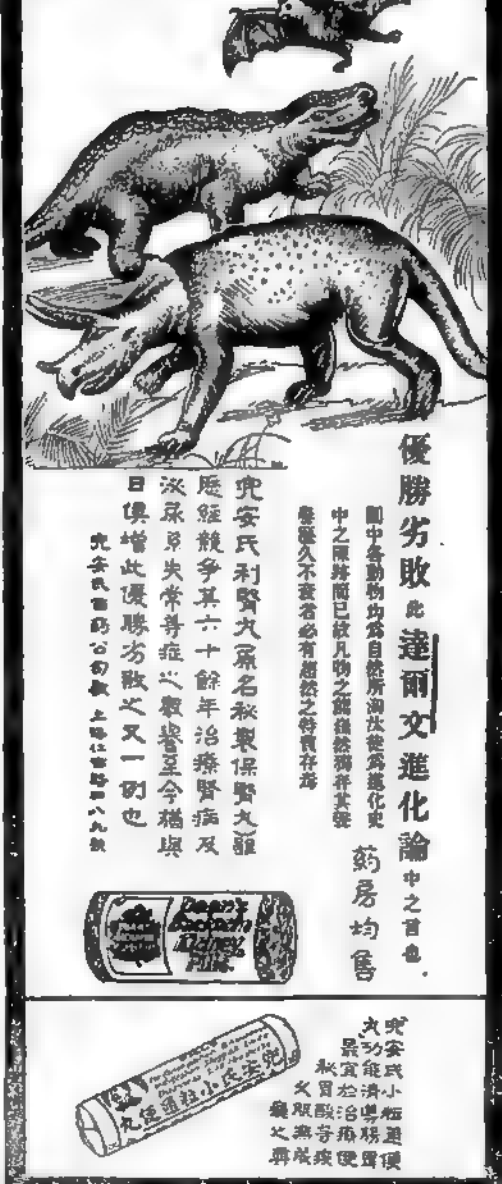 優勝劣敗此達爾文進化論中之言也.
圖中各動物均爲自然所淘汰徒爲進化史
中之陳跡而已故凡物之能巍然獨存其聲
譽歷久不衰者必有超然之特質存焉
藥房均售
兜安氏利腎丸原名秘製保腎丸雖
歷經競爭其六十餘年治療腎病及
泌尿系失常等症之聲譽至今猶與
日俱增此優勝劣敗之又一例也
兜安氏西藥公司啟 上海仁路八九號
Doan's
Backache
Kidney
Pills.
兜安氏小粒通便
丸功能清導腸胃
最宜於治療便
秘胃酸等疾
久服無成
癮之弊
兜安氏小粒通便丸